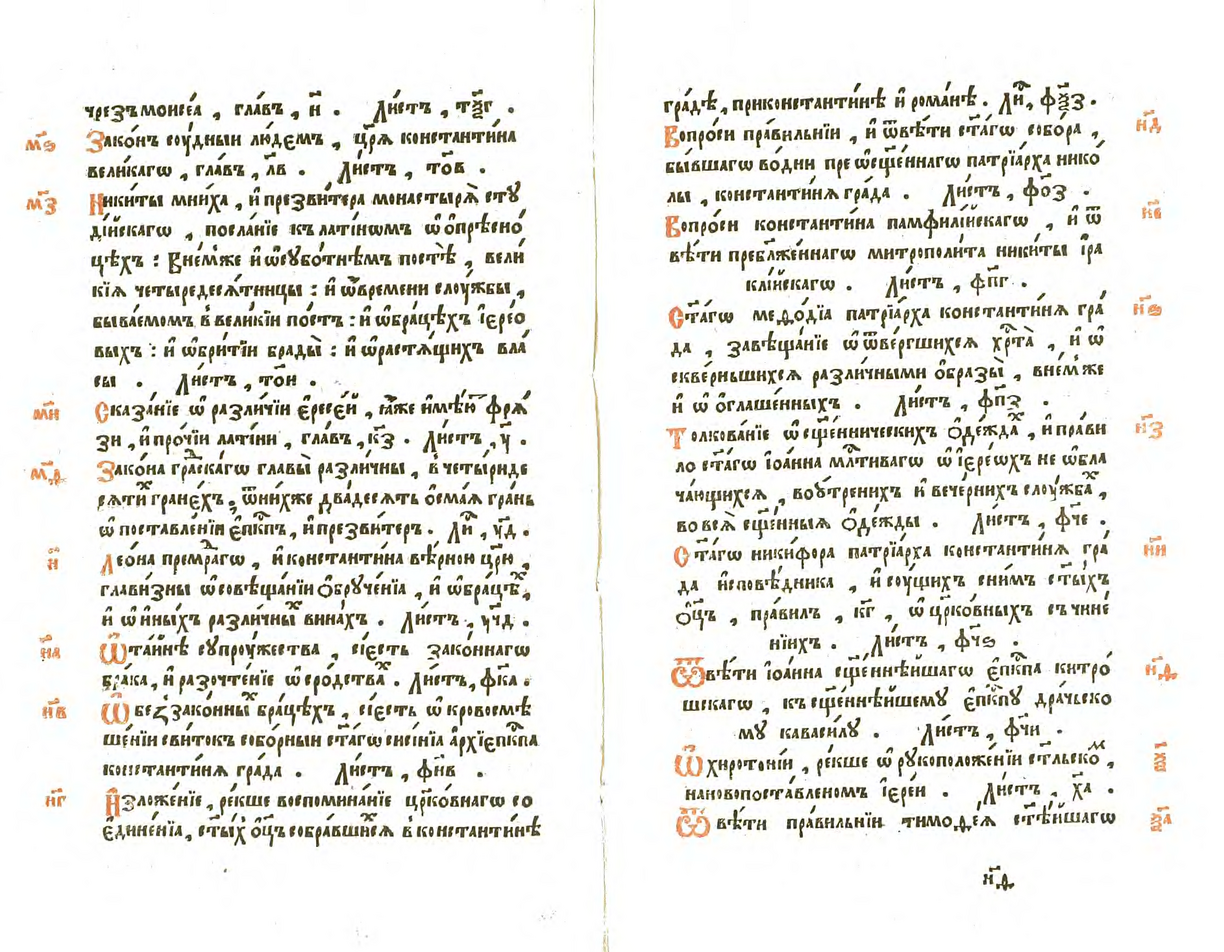 чрезъ моисеа , гла́въ , н҃ . Ли́стъ , тѯ҃г .
м҃ѕ Зако́нъ сѹ́дныи лю́демъ , цр҃ѧ̀ константи́на
вели́кагѡ , гла́въ , л҃в . Ли́стъ , то҃в .
м҃з Ники́ты мни́ха , и҆ презви́тера монастырѧ̀ стꙋ
ді́йскагѡ , посла́нїе къ лати́нѡмъ ѡ҆ ѻ҆прѣсно́
цѣхъ : Вне́мже и҆ ѡ҆ сꙋбо́тнѣмъ постѣ̀ , вели
кїѧ четыредесѧ́тницы : и҆ ѡ҆ времени слѹ́жбы ,
быва́емомъ в вели́кїи по́стъ : и҆ ѡ҆ бра́цѣхъ і҆ере́о
выхъ : и҆ ѡ҆ бри́тїи брады̀ : и҆ ѡ҆ растѧ́щихъ вла
сы . Ли́стъ , то҃и .
м҃и Сказа́нїе ѡ҆ разли́чїи є҆ресе́й , ꙗ҆́же и҆мѣ́ю фрѧ́
зи , и҆ про́чїи лати́ни , гла́въ , к҃з . Ли́стъ , ѵ҃ .
м҃ѳ Зако́на гра́скагѡ главы̀ разли́чны , в четы́риде
сѧти́ гране́хъ , ѿ ни́хже два́десѧть ѻ҆сма́ѧ гра́нь
ѡ҆ поставле́нїи є҆пⷭ҇кпъ , и҆ презви́теръ . Ли̑ , ѵ҃д .
н҃ Лео́на премⷣраго , и҆ константи́на вѣ́рною цр҃ю̀ ,
глави́зны ѡ҆ совѣща́нїи ѻ҆брꙋче́нїѧ , и҆ ѡ҆ бра́цѣⷯ ,
и҆ ѡ҆ и҆ны́хъ разли́чныⷯ вина́хъ . Ли́стъ , ѵ҃ч҃д .
н҃а Ѡ҆ та́йнѣ сꙋпрѹ́жества , сі́есть зако́ннагѡ
бра́ка , и҆ разочте́нїе ѡ҆ сро́дстваⷯ . Ли́стъ , ф҃ка .
н҃в Ѡ҆ беззако́нныⷯ бра́цѣхъ , сі́есть ѡ҆ кровосмѣ
ше́нїи сви́токъ собо́рныи ст҃а́гѡ сиси́нїа а҆рхїепⷭ҇кпа
константи́нѧ гра́да . Ли́стъ , фн҃в .
н҃г И҆зложе́нїе , ре́кше воспомина́нїе цр҃ко́внагѡ со
є҆дине́нїа , ст҃ы́хъ ѻ҆ц҃ъ собра́вшихсѧ в константи́нѣ
гра́дѣ , при константи́нѣ и҆ рома́нѣ . Ли̑ , фѯ҃з .
н҃д Вопро́си пра́вильнїи , и҆ ѿвѣ́ти ст҃а́гѡ собо́ра ,
бы́вшагѡ во́дни прео҆сщ҃е́ннагѡ патрїа́рха нико́
лы , константи́нѧ гра́да . Ли́стъ , фо҃з .
н҃є Вопро́си константи́на памфилі́йскагѡ , и҆ ѿ
вѣ́ти пребл҃же́ннагѡ митрополи́та ники́ты і҆ра
клі́йскагѡ . Ли́стъ , фп҃г .
н҃ѕ Ст҃а́гѡ меѳо́дїа патрїа́рха константи́нѧ гра́
да , завѣща́нїе ѡ҆ ѿве́ргшихсѧ хрⷭ҇та̀ , и҆ ѡ҆
скве́рньшихсѧ разли́чными ѻ҆бразы̀ , вне́мже
и҆ ѡ҆ ѻ҆глаше́нныхъ . Ли́стъ , фп҃з .
н҃з Толкова́нїе ѡ҆ сщ҃е́нническихъ ѻ҆де́ждаⷯ , и҆ пра́ви
ло ст҃а́гѡ і҆ѡа́нна мл҃тиваго ѡ҆ і҆ере́ѡхъ не ѡ҆бла
ча́ющихсѧ , во ꙋ҆́тренихъ и҆ вече́рнихъ слѹ́жбаⷯ ,
во всѧ̀ сщ҃е́нныѧ ѻ҆де́жды . Ли́стъ , фч҃є .
н҃и Ст҃а́гѡ ники́фора патрїа́рха константи́нѧ гра́
да и҆сповѣ́дника , и҆ сѹ́щихъ сни́мъ ст҃ы́хъ
ѻ҆ц҃ъ , пра́вилъ , к҃г , ѡ҆ цр҃ко́вныхъ съчине́
нїихъ . Ли́стъ , фч҃ѕ .
н҃ѳ Ѿвѣ́ти і҆ѡа́нна сщ҃еннѣ́йшагѡ є҆пⷭ҇кпа китро́
шскагѡ , къ сщ҃еннѣ́йшемꙋ є҆пⷭ҇кпꙋ дра́чьско
мꙋ каваси́лꙋ . Ли́стъ , фч҃и .
ѯ҃ Ѡ҆ хирото́нїи , ре́кше ѡ҆ рꙋкоположе́нїи ст҃льскоⷨ ,
на новопоста́вленомъ і҆ере́и . Ли́стъ , х҃а .
ѯ҃а Ѿвѣ́ти пра́вильнїи тимоѳе́ѧ ст҃ѣ́йшагѡ
н҃ѳ